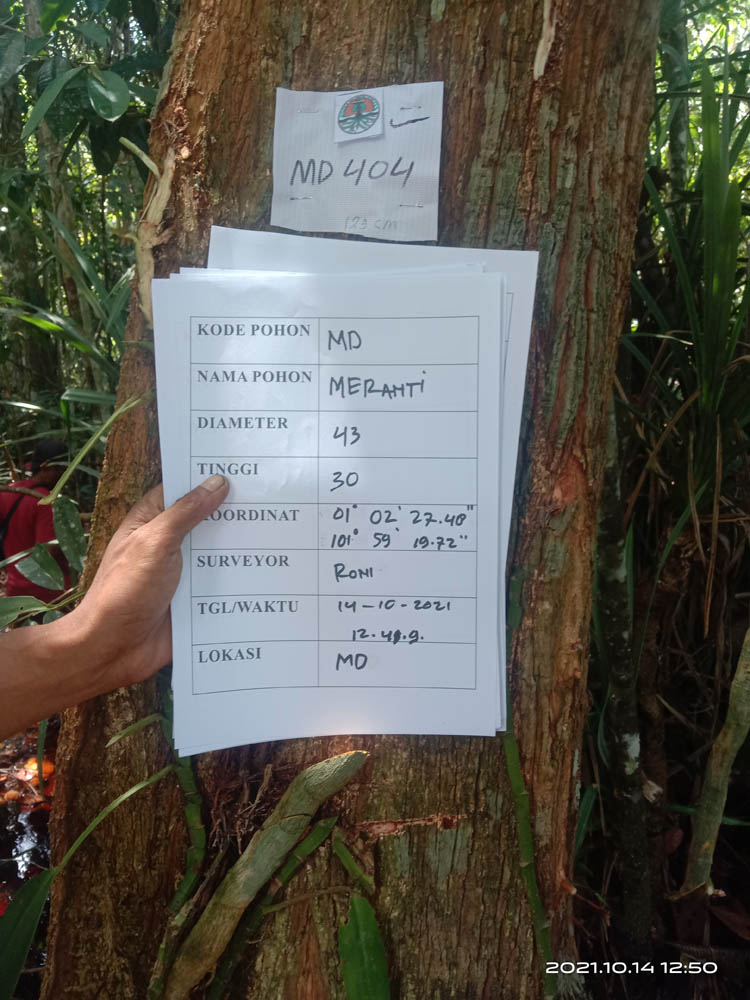 MD 404
123 cm
KODE POHON MD
NAMA POHON MERANTI
DIAMETER 43
TINGGI 30
KOORDINAT 01° 02' 27.40"
101° 59' 19.72"
SURVEYOR RONI
TGL/WAKTU 14-10-2021
LOKASI MD
2021.10.14 12:50